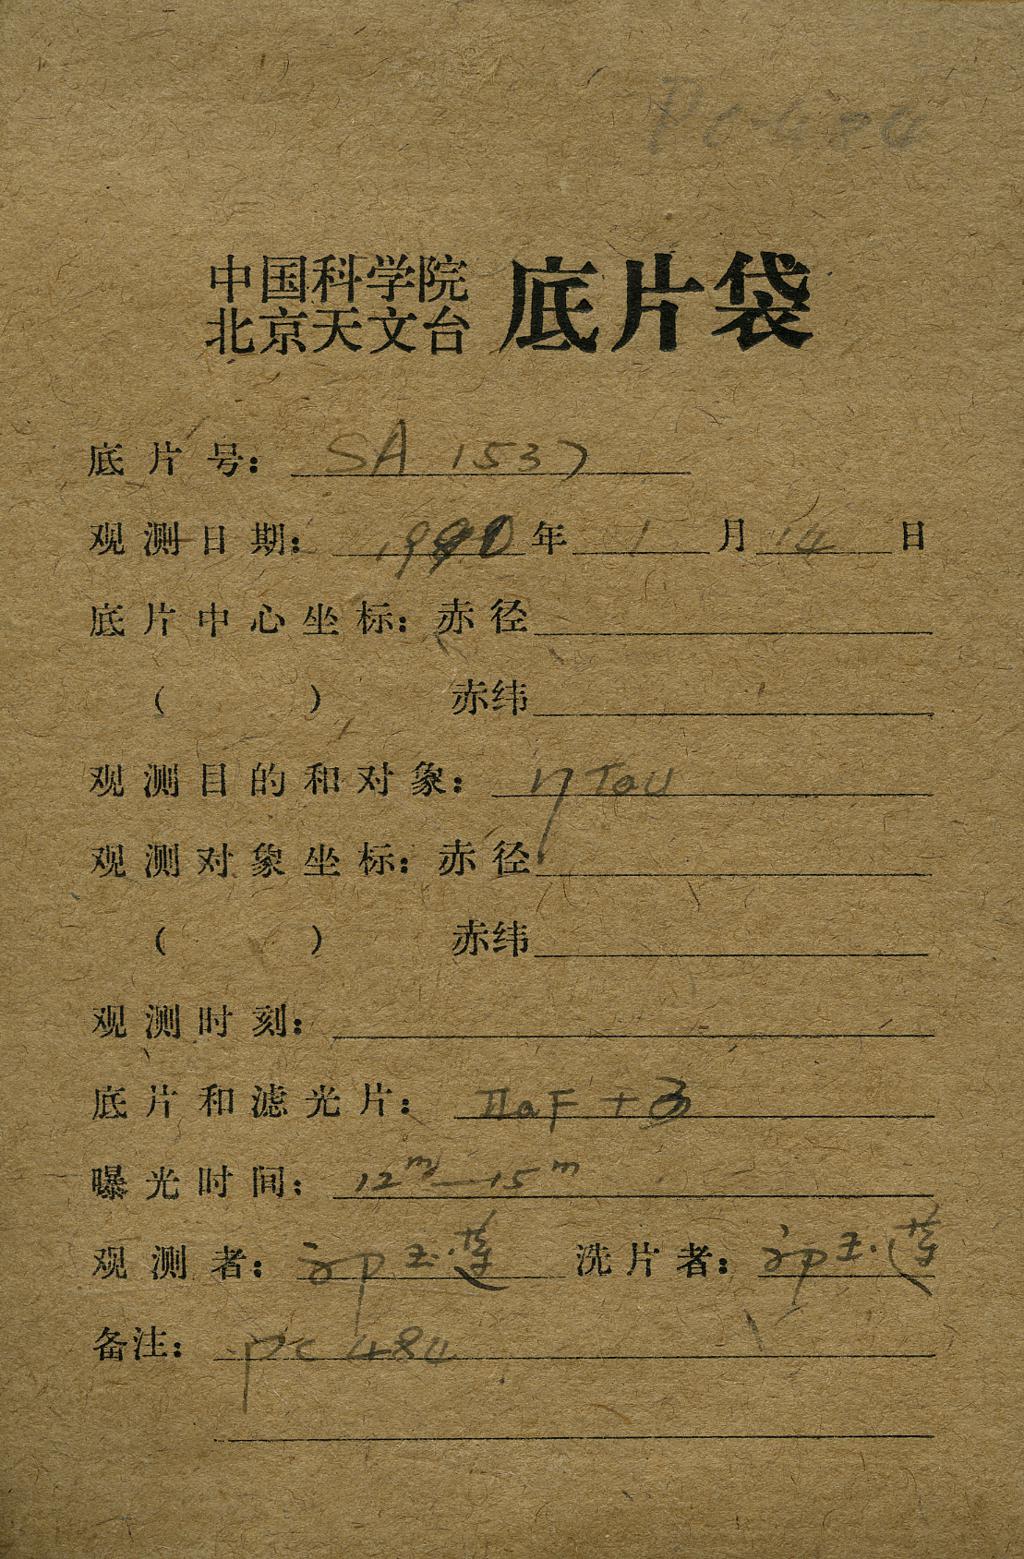 Pc-484
中国科学院
北京天文台 底片袋
底片号: SA 1537
观测日期: 1990年 1月 14日
底片中心坐标: 赤径
( ) 赤纬
观测目的和对象: η Tau
观测对象坐标: 赤径
( ) 赤纬
观测时刻:
底片和滤光片: IIaF + 3
曝光时间: 12ᵐ—15ᵐ
观测者: 玉莲 洗片者: 玉莲
备注: pc 484